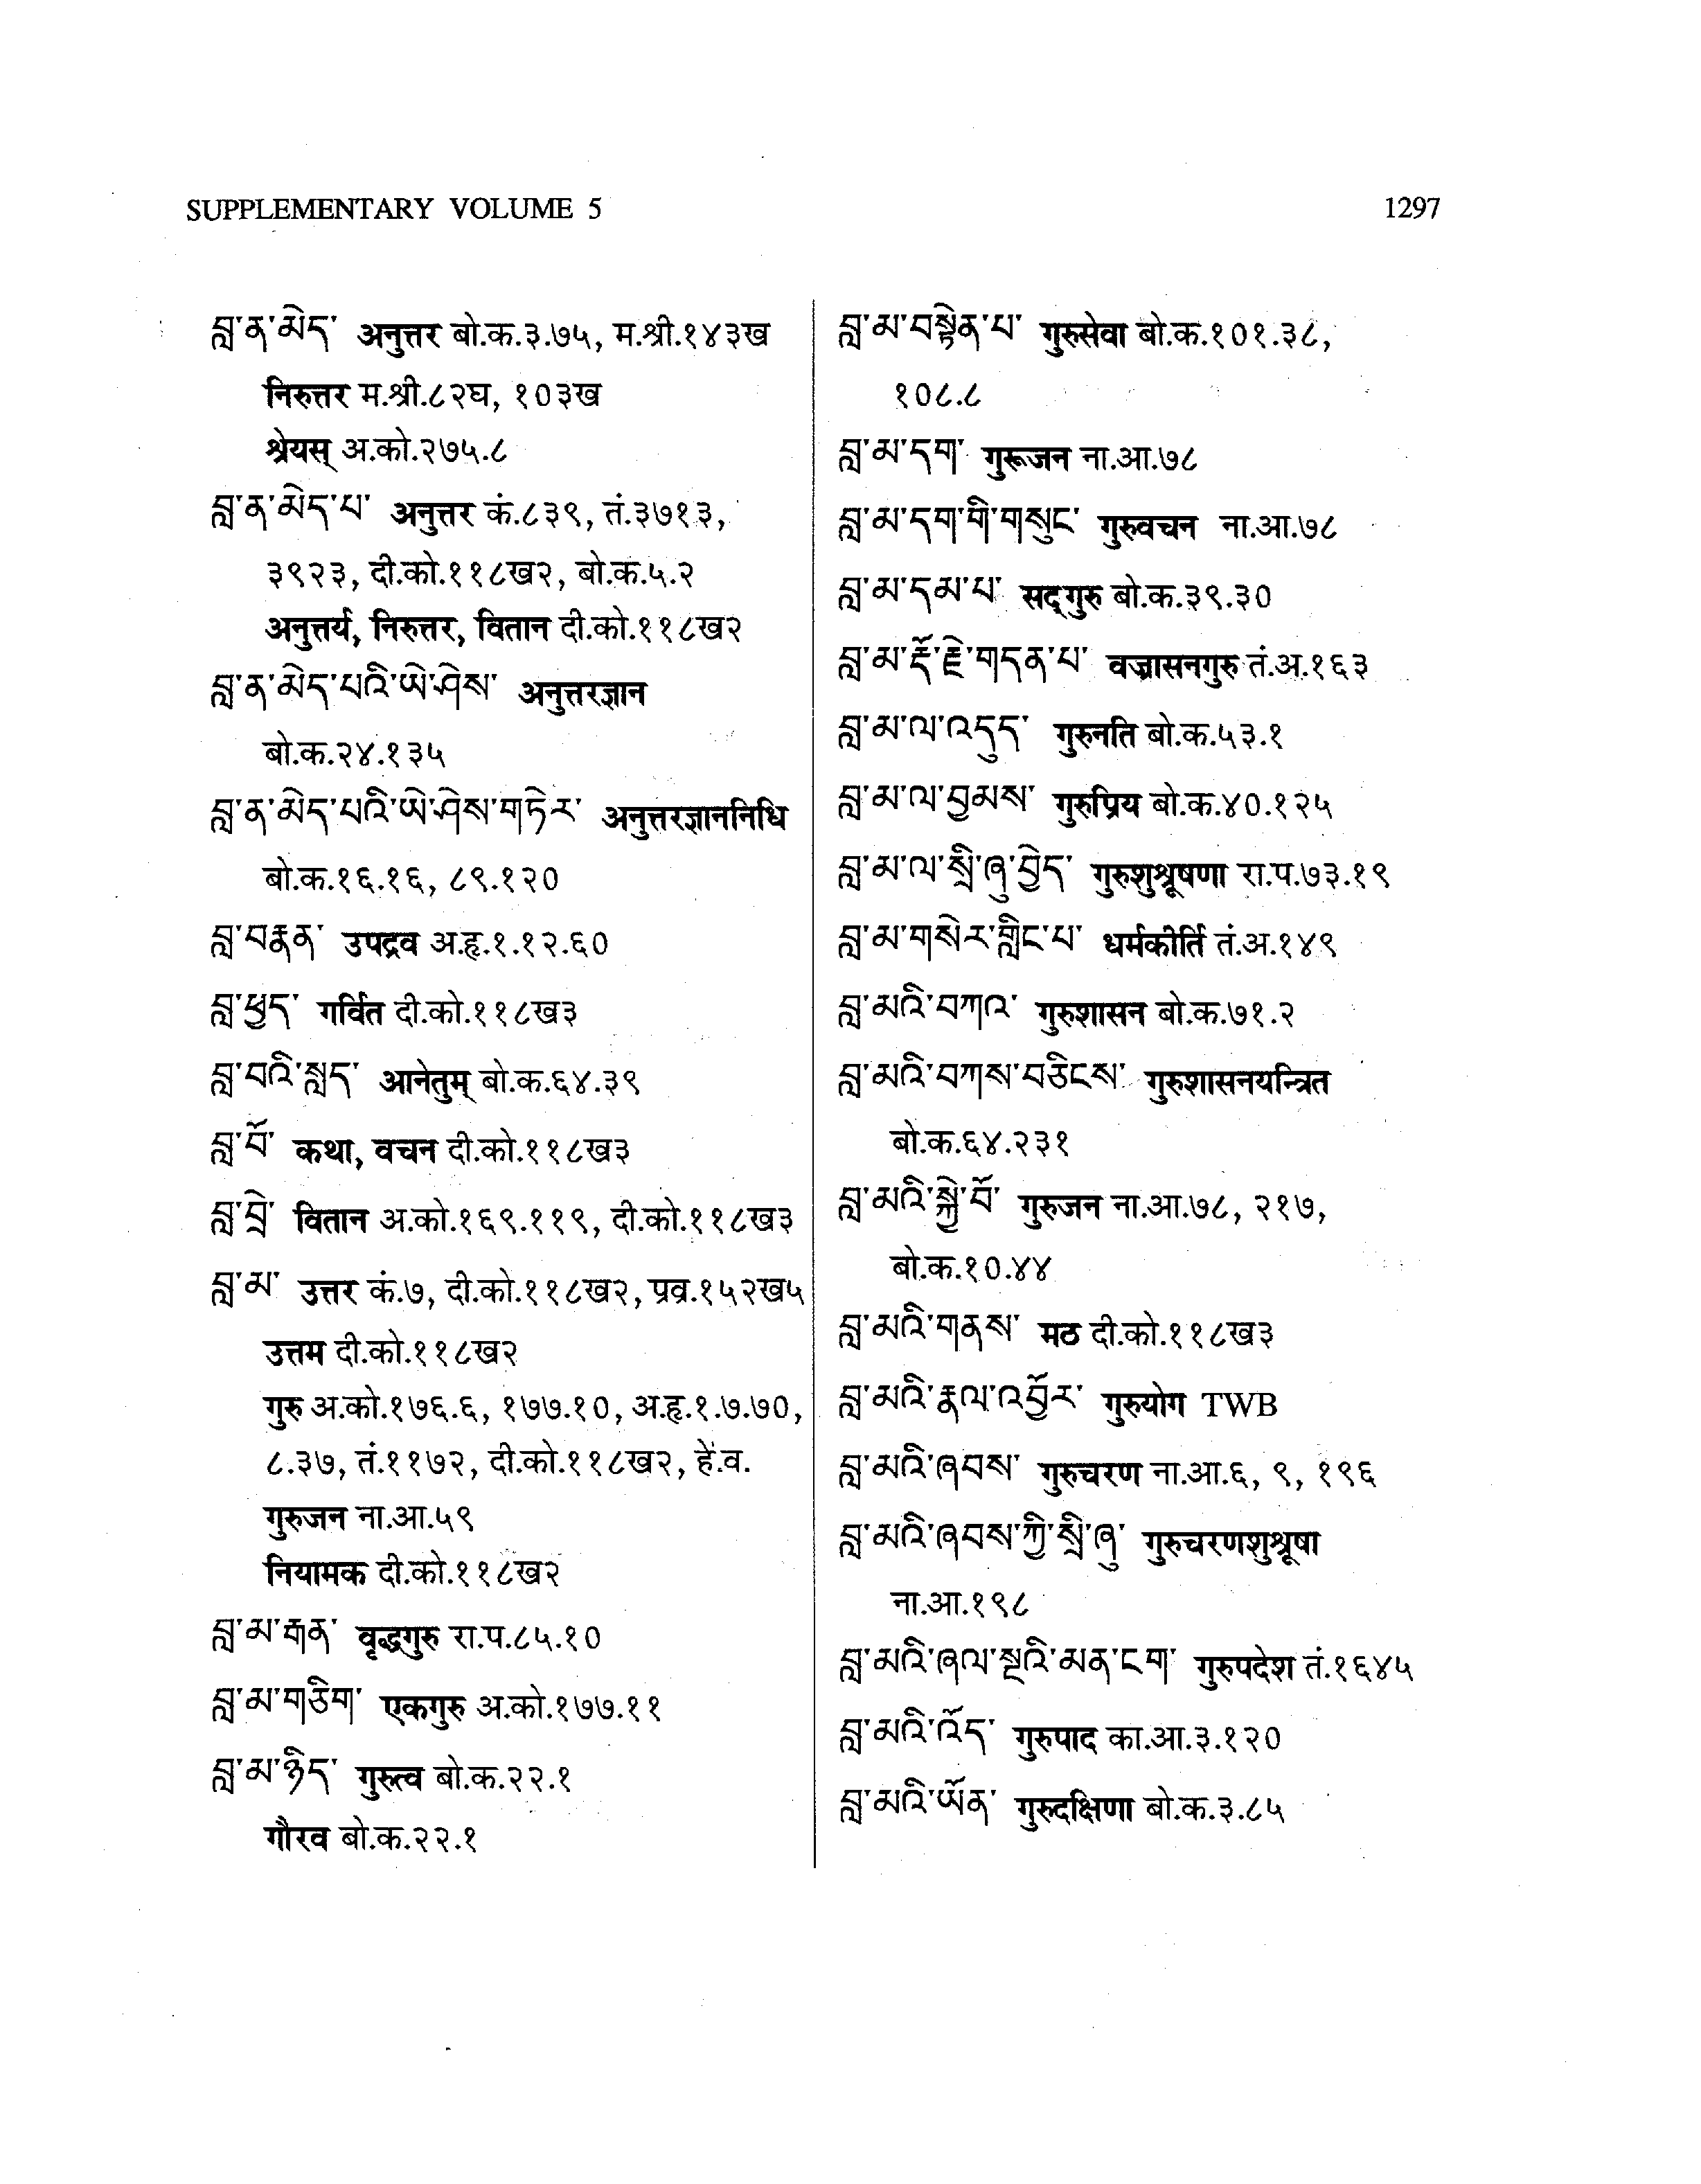 SUPPLEMENTARY VOLUME 5
1297
བླ་ན་མེད་ अनुत्तर बो.क.३.७५, म.श्री.१४३ख
निरुत्तर म.श्री.८२घ, १०३ख
श्रेयस् अ.को.२७५.८
བླ་ན་མེད་པ་ अनुत्तर कं.८३९, तं.३७१३,
३९२३, दी.को.११८ख२, बो.क.५.२
अनुत्तर्य, निरुत्तर, वितान दी.को.११८ख२
བླ་ན་མེད་པའི་ཡེ་ཤེས་ अनुत्तरज्ञान
बो.क.२४.१३५
བླ་ན་མེད་པའི་ཡེ་ཤེས་གཏེར་ अनुत्तरज्ञाननिधि
बो.क.१६.१६, ८९.१२०
བླ་བརྣན་ उपद्रव अ.हृ.१.१२.६०
བླ་ཕྱད་ गर्वित दी.को.११८ख३
བླ་བའི་སླད་ आनेतुम् बो.क.६४.३९
བླ་བོ་ कथा, वचन दी.को.११८ख३
བླ་བྲེ་ वितान अ.को.१६९.११९, दी.को.११८ख३
བླ་མ་ उत्तर कं.७, दी.को.११८ख२, प्रव्र.१५२ख५
उत्तम दी.को.११८ख२
गुरु अ.को.१७६.६, १७७.१०, अ.हृ.१.७.७०,
८.३७, तं.११७२, दी.को.११८ख२, हे.व.
गुरुजन ना.आ.५९
नियामक दी.को.११८ख२
བླ་མ་རྒན་ वृद्धगुरु रा.प.८५.१०
བླ་མ་གཅིག་ एकगुरु अ.को.१७७.११
བླ་མ་ཉིད་ गुरुत्व बो.क.२२.१
गौरव बो.क.२२.१
བླ་མ་བསྟེན་པ་ गुरुसेवा बो.क.१०१.३८,
१०८.८
བླ་མ་དག་ गुरूजन ना.आ.७८
བླ་མ་དག་གི་གསུང་ गुरुवचन ना.आ.७८
བླ་མ་དམ་པ་ सद्गुरु बो.क.३९.३०
བླ་མ་རྡོ་རྗེ་གདན་པ་ वज्रासनगुरु तं.अ.१६३
བླ་མ་ལ་འདུད་ गुरुनति बो.क.५३.१
བླ་མ་ལ་བྱམས་ गुरुप्रिय बो.क.४०.१२५
བླ་མ་ལ་སྲི་ཞུ་བྱེད་ गुरुशुश्रूषणा रा.प.७३.१९
བླ་མ་གསེར་གླིང་པ་ धर्मकीर्ति तं.अ.१४९
བླ་མའི་བཀའ་ गुरुशासन बो.क.७१.२
བླ་མའི་བཀས་བཅིངས་ गुरुशासनयन्त्रित
बो.क.६४.२३१
བླ་མའི་སྐྱེ་བོ་ गुरुजन ना.आ.७८, २१७,
बो.क.१०.४४
བླ་མའི་གནས་ मठ दी.को.११८ख३
བླ་མའི་རྣལ་འབྱོར་ गुरुयोग TWB
བླ་མའི་ཞབས་ गुरुचरण ना.आ.६, ९, १९६
བླ་མའི་ཞབས་ཀྱི་སྲི་ཞུ་ गुरुचरणशुश्रूषा
ना.आ.१९८
བླ་མའི་ཞལ་སྔའི་མན་ངག་ गुरुपदेश तं.१६४५
བླ་མའི་འོད་ गुरुपाद का.आ.३.१२०
བླ་མའི་ཡོན་ गुरुदक्षिणा बो.क.३.८५